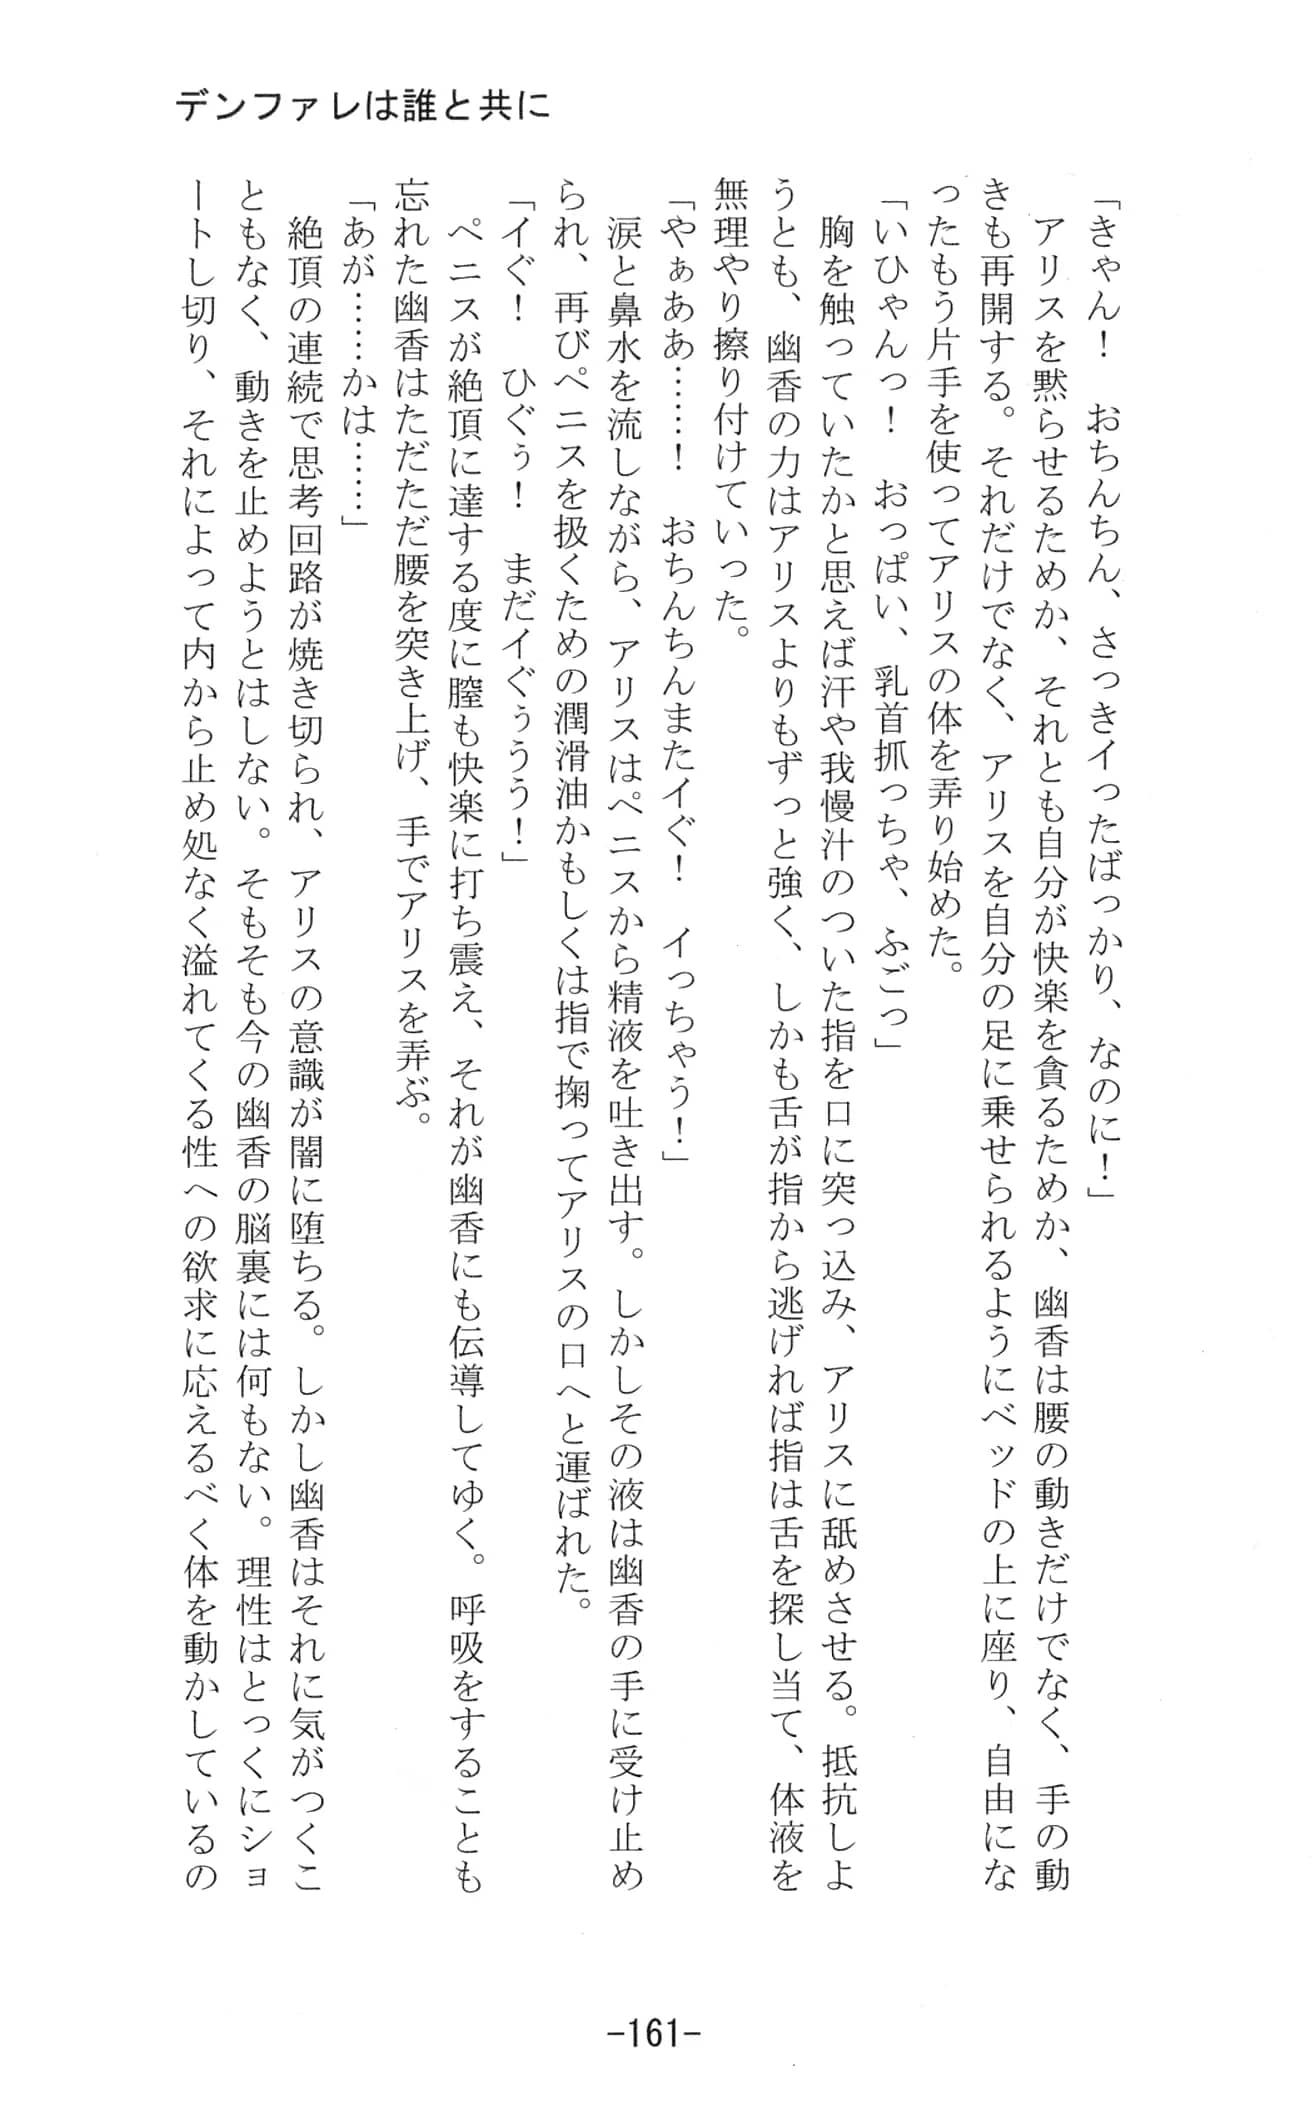 デンファレは誰と共に
「きゃん！　おちんちん、さっきイったばっかり、なのに！」
　アリスを黙らせるためか、それとも自分が快楽を貪るためか、幽香は腰の動きだけでなく、手の動
きも再開する。それだけでなく、アリスを自分の足に乗せられるようにベッドの上に座り、自由にな
ったもう片手を使ってアリスの体を弄り始めた。
「いひゃんっ！　おっぱい、乳首抓っちゃ、ふごっ」
　胸を触っていたかと思えば汗や我慢汁のついた指を口に突っ込み、アリスに舐めさせる。抵抗しよ
うとも、幽香の力はアリスよりもずっと強く、しかも舌が指から逃げれば指は舌を探し当て、体液を
無理やり擦り付けていった。
「やぁああ……！　おちんちんまたイぐ！　イっちゃう！」
　涙と鼻水を流しながら、アリスはペニスから精液を吐き出す。しかしその液は幽香の手に受け止め
られ、再びペニスを扱くための潤滑油かもしくは指で掬ってアリスの口へと運ばれた。
「イぐ！　ひぐぅ！　まだイぐぅうう！」
　ペニスが絶頂に達する度に膣も快楽に打ち震え、それが幽香にも伝導してゆく。呼吸をすることも
忘れた幽香はただただ腰を突き上げ、手でアリスを弄ぶ。
「あが……かは……」
　絶頂の連続で思考回路が焼き切られ、アリスの意識が闇に堕ちる。しかし幽香はそれに気がつくこ
ともなく、動きを止めようとはしない。そもそも今の幽香の脳裏には何もない。理性はとっくにショ
ートし切り、それによって内から止め処なく溢れてくる性への欲求に応えるべく体を動かしているの
-161-